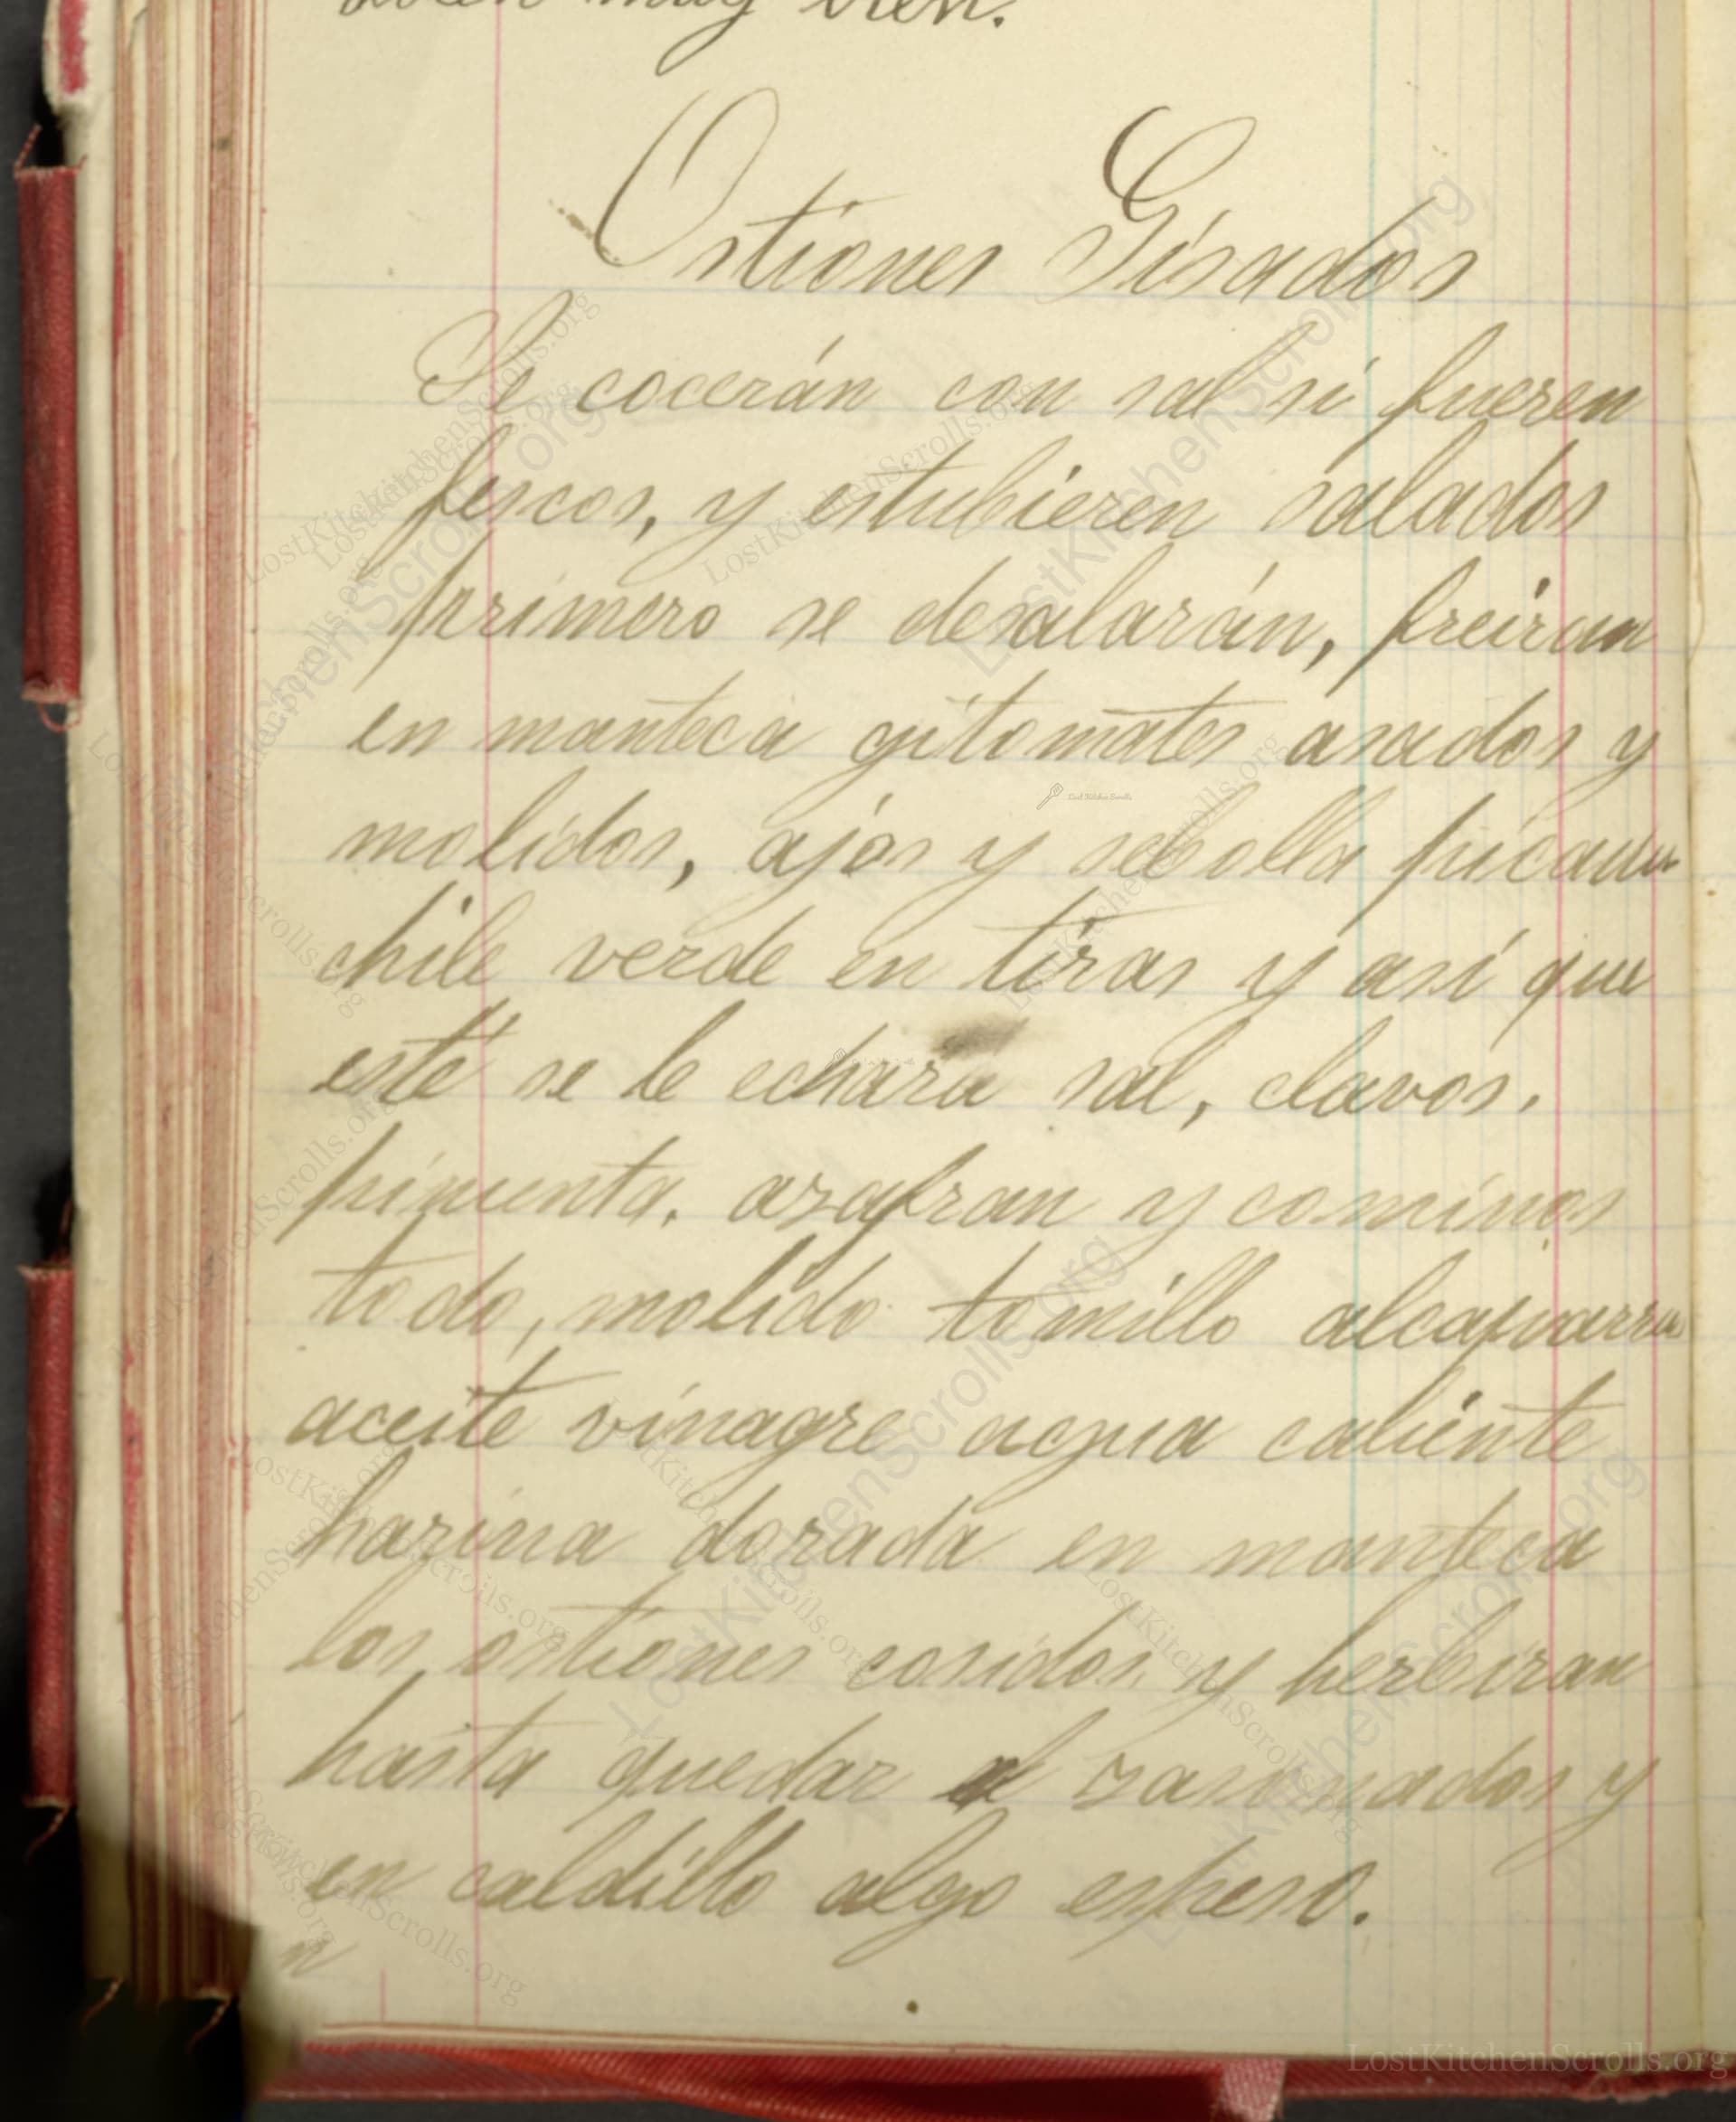 muy bien.
Ostiones Gisados
Se cocerán con sal si fueren
fescos, y estubieren salados
primero se desalarán, freiran
en manteca gitomates asados y
molidos, ajos y sebolla picaun
chile verde en tiras y así que
esté se le echara sal, clavos.
pimienta. azafran y cominos
todo, molido tomillo alcaparra
aceite vinagre agua caliente
harina dorada en manteca
los ostiones cosidos y herbiran
hasta quedar sasonados y
en caldillo algo espeso.
LostKitchenScrolls.org